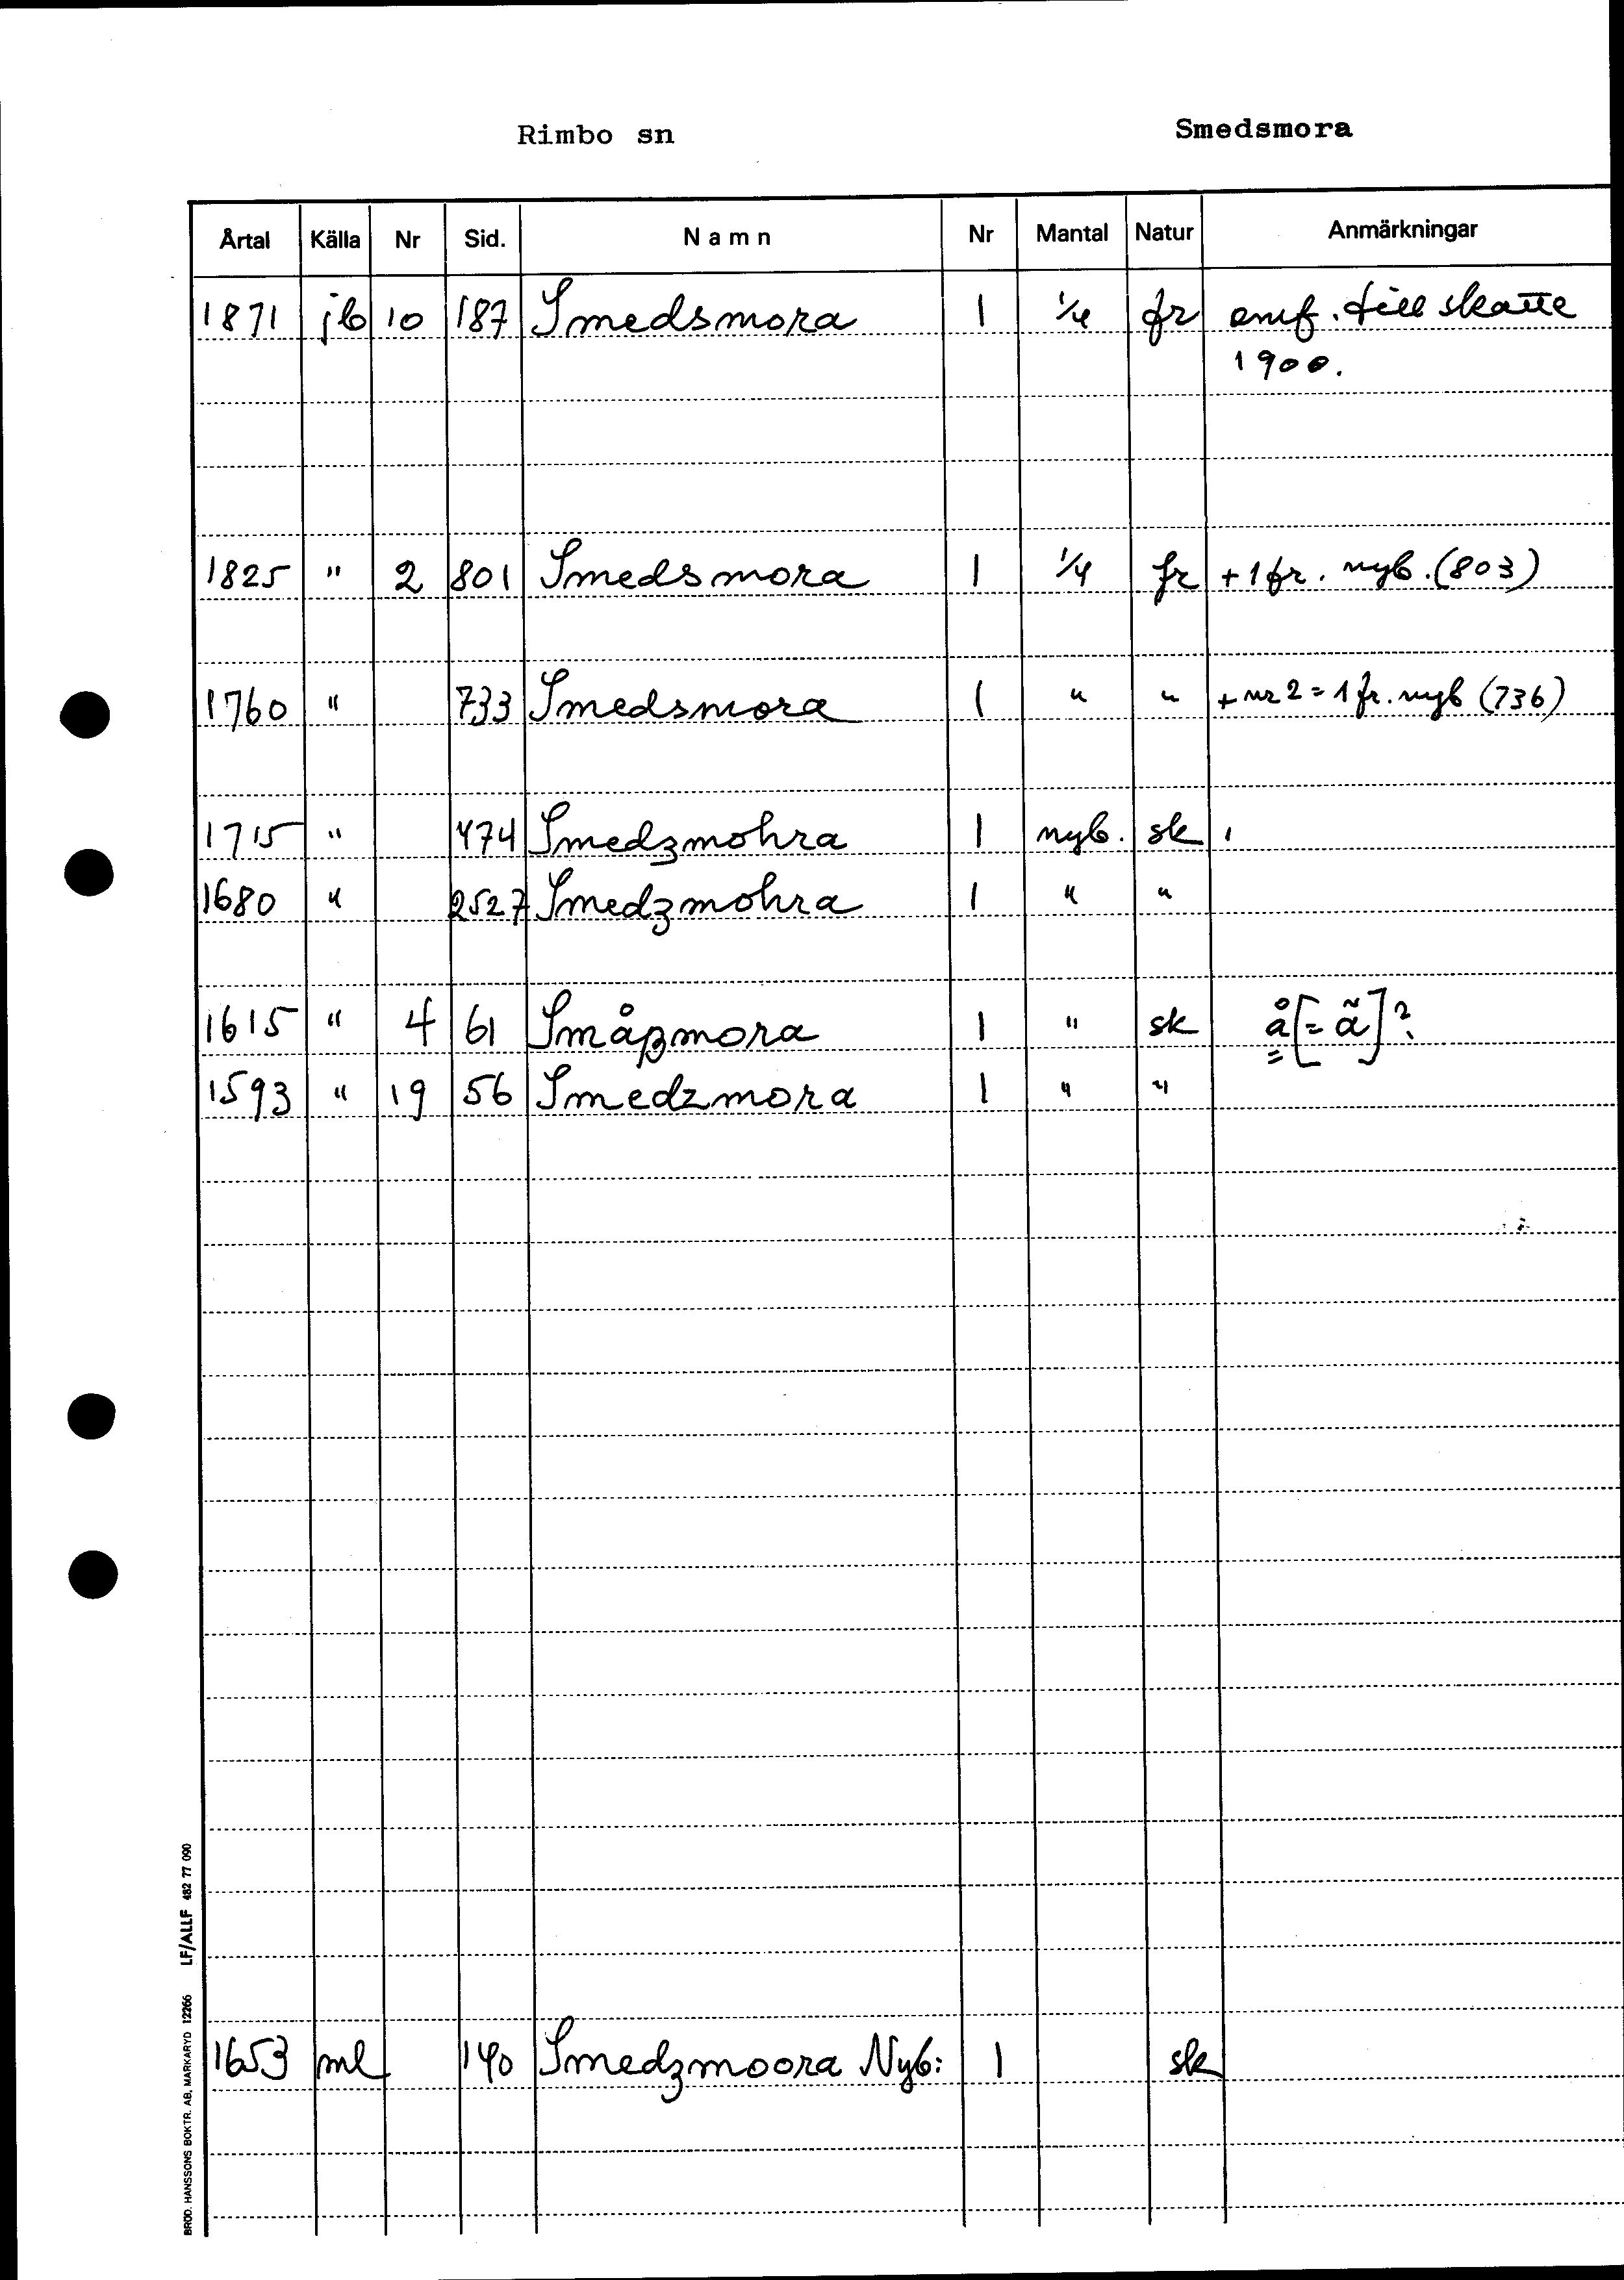 Rimbo sn Smedsmora
Årtal Källa Nr Sid. Namn Nr Mantal Natur Anmärkningar
1871 jb 10 187 Smedsmora 1 1/4 fr omf. till skatte
1900.
1825 " 2 801 Smedsmora 1 1/4 fr + 1 fr. nyb. (803)
1760 " 733 Smedsmora 1 " " + nr 2 = 1 fr. nyb (736)
1715 " 474 Smedzmohra 1 nyb. sk
1680 " 2527 Smedzmohra 1 " "
1615 " 4 61 Småßmora 1 " sk å [= ã]?
1593 " 19 56 Smedzmora 1 " "
1653 ml 140 Smedzmoora Nyb: 1 sk
BRÖD. HANSSONS BOKTR. AB, MARKARYD 12266 LF/ALLF 482 77 090